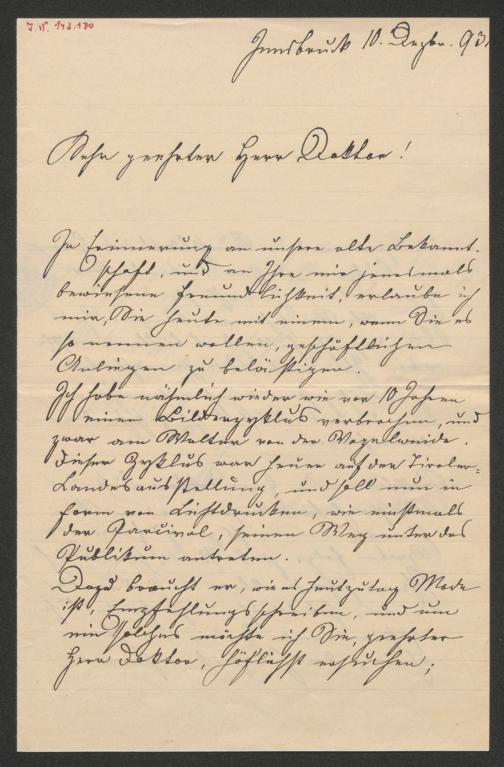 I.N. 143.180
Innsbruck 10. Dezbr. 93.
Sehr geehrter Herr Doktor!
In Erinnerung an unsere alte Bekannt-
schaft, und an Ihre mir jenesmals
bewiesene Freundlichkeit, erlaube ich
mir, Sie heute mit einem, wenn Sie es
so nennen wollen, geschäftlichen
Anliegen zu belästigen.
Ich habe nähmlich wieder wie vor 10 Jahren
einen Bilderzyklus verbrochen, und
zwar am Walter von der Vogelweide.
Dieser Zyklus war heuer auf der Tiroler-
Landesausstellung, und soll nun in
Form von Lichtdrucken, wie einstmals
der Parcival, seinen Weg unter das
Publikum antreten.
Dazu braucht er, wie es heutzutag Mode
ist, Empfehlungsschreiben, und um
ein solches möchte ich Sie, geehrter
Herr Doktor, höflichst ersuchen;